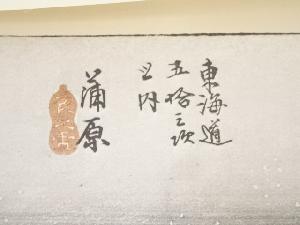 東海道
五拾三次
之内
蒲原